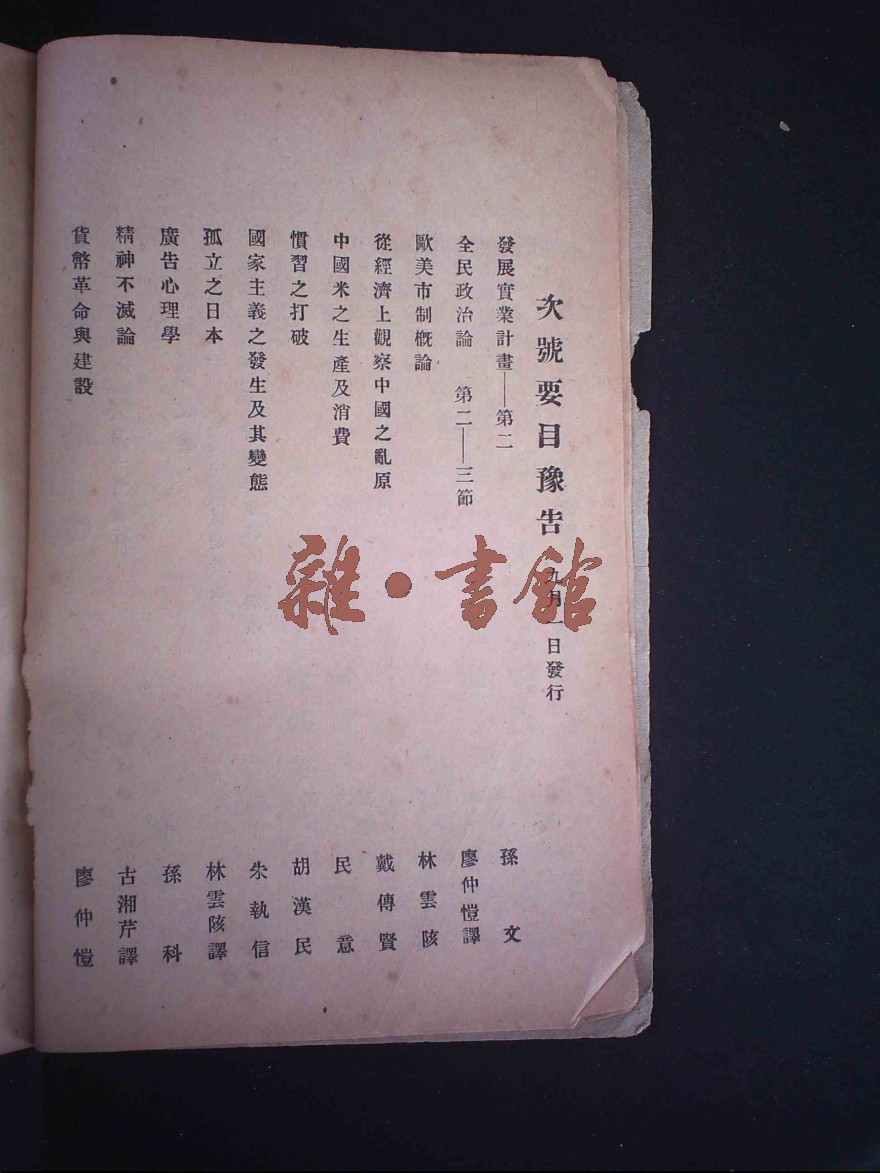 次號要目豫告 九月一日發行
發展實業計畫——第二 孫文
全民政治論 第二——三節 廖仲愷譯
歐美市制概論 林雲陔
從經濟上觀察中國之亂原 戴傳賢
中國米之生產及消費 民意
慣習之打破 胡漢民
國家主義之發生及其變態 朱執信
孤立之日本 林雲陔譯
廣告心理學 孫科
精神不滅論 古湘芹譯
貨幣革命與建設 廖仲愷
雜·書館